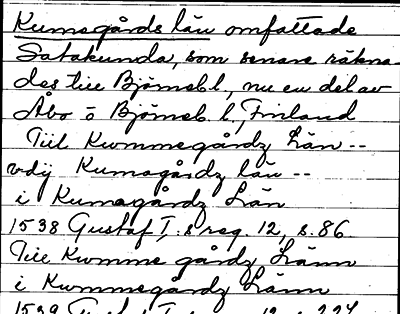 Kumogårds län omfattade
Satakunda, som senare räkna-
des till Björnebl., nu en del av
Åbo o Björneb. l., Finland
Till Kwmmegårdz Län --
vdij Kumogårdz län --
i Kumagårdz Län
1538 Gustaf I:s reg. 12, s. 86.
Till Kwmme gårdz Länn
i Kwmmegårdz Länn
1539 Gustaf I:s reg. 12